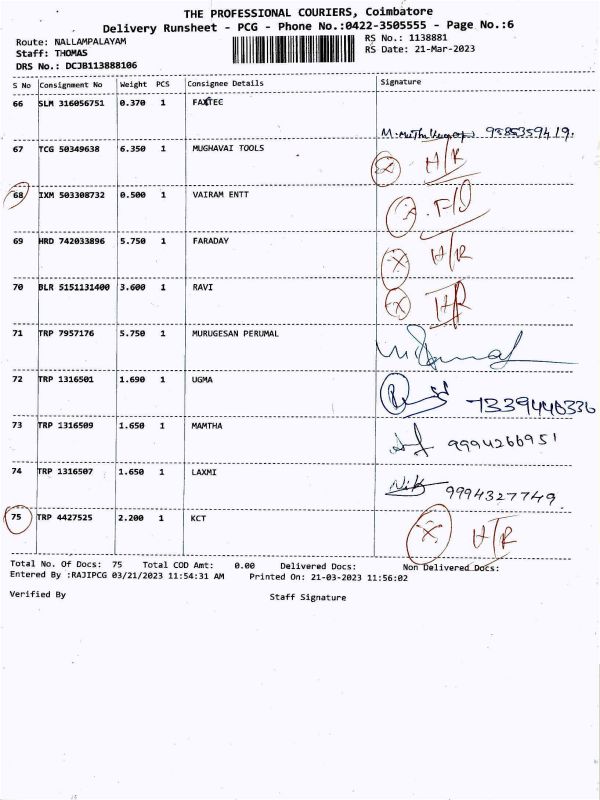 THE PROFESSIONAL COURIERS, Coimbatore
Delivery Runsheet - PCG - Phone No.:0422-3505555 - Page No.:6
Route: NALLAMPALAYAM
RS No.: 1138881
Staff: THOMAS
RS Date: 21-Mar-2023
DRS No.: DCJB113888106
S No Consignment No Weight PCS Consignee Details Signature
66 SLM 316056751 0.370 1 FAXTEC
67 TCG 50349638 6.350 1 MUGHAVAI TOOLS H/R
68 IXM 503308732 0.500 1 VAIRAM ENTT F/D
69 HRD 742033896 5.750 1 FARADAY H/R
70 BLR 5151131400 3.600 1 RAVI H/R
71 TRP 7957176 5.750 1 MURUGESAN PERUMAL
72 TRP 1316501 1.690 1 UGMA 7339440336
73 TRP 1316509 1.650 1 MAMTHA 9994266951
74 TRP 1316507 1.650 1 LAXMI 9994327749.
75 TRP 4427525 2.200 1 KCT H/R
Total No. Of Docs: 75 Total COD Amt: 0.00 Delivered Docs: Non Delivered Docs:
Entered By :RAJIPCG 03/21/2023 11:54:31 AM Printed On: 21-03-2023 11:56:02
Verified By Staff Signature